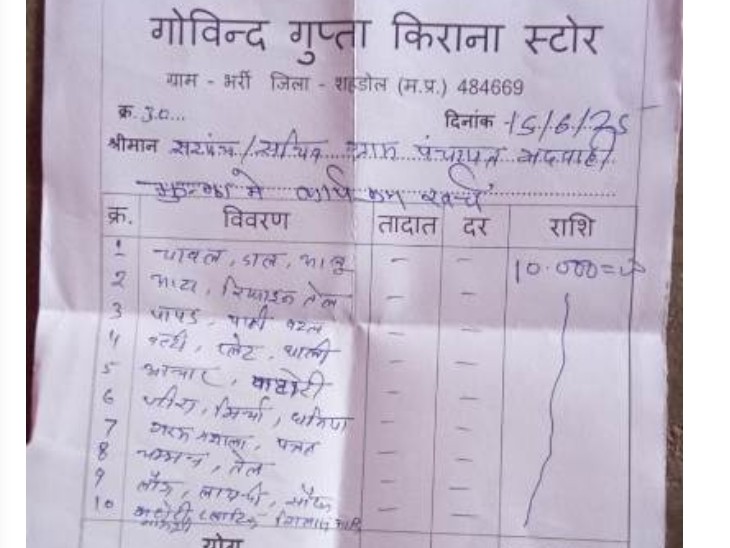 गोविन्द गुप्ता किराना स्टोर
ग्राम - भर्री जिला - शहडोल (म.प्र.) 484669
क्र. 30... दिनांक 15/6/25
श्रीमान सरपंच/सचिव ग्राम पंचायत भदवाही
मे कार्यक्रम खर्च
क्र. विवरण तादात दर राशि
1 चावल, दाल, आलू - - 10.000=00
2 आटा, रिफाइन तेल - -
3 पापड, पानी - -
4 प्लेट, थाली - -
5 आचार, - -
6 जीरा, मिर्चा, धनिया - -
7 गरम मशाला, - -
8 चम्मच, तेल - -
9 लौंग, लायची, सौंफ - -
10 कटोरी, गिलास - -
योग